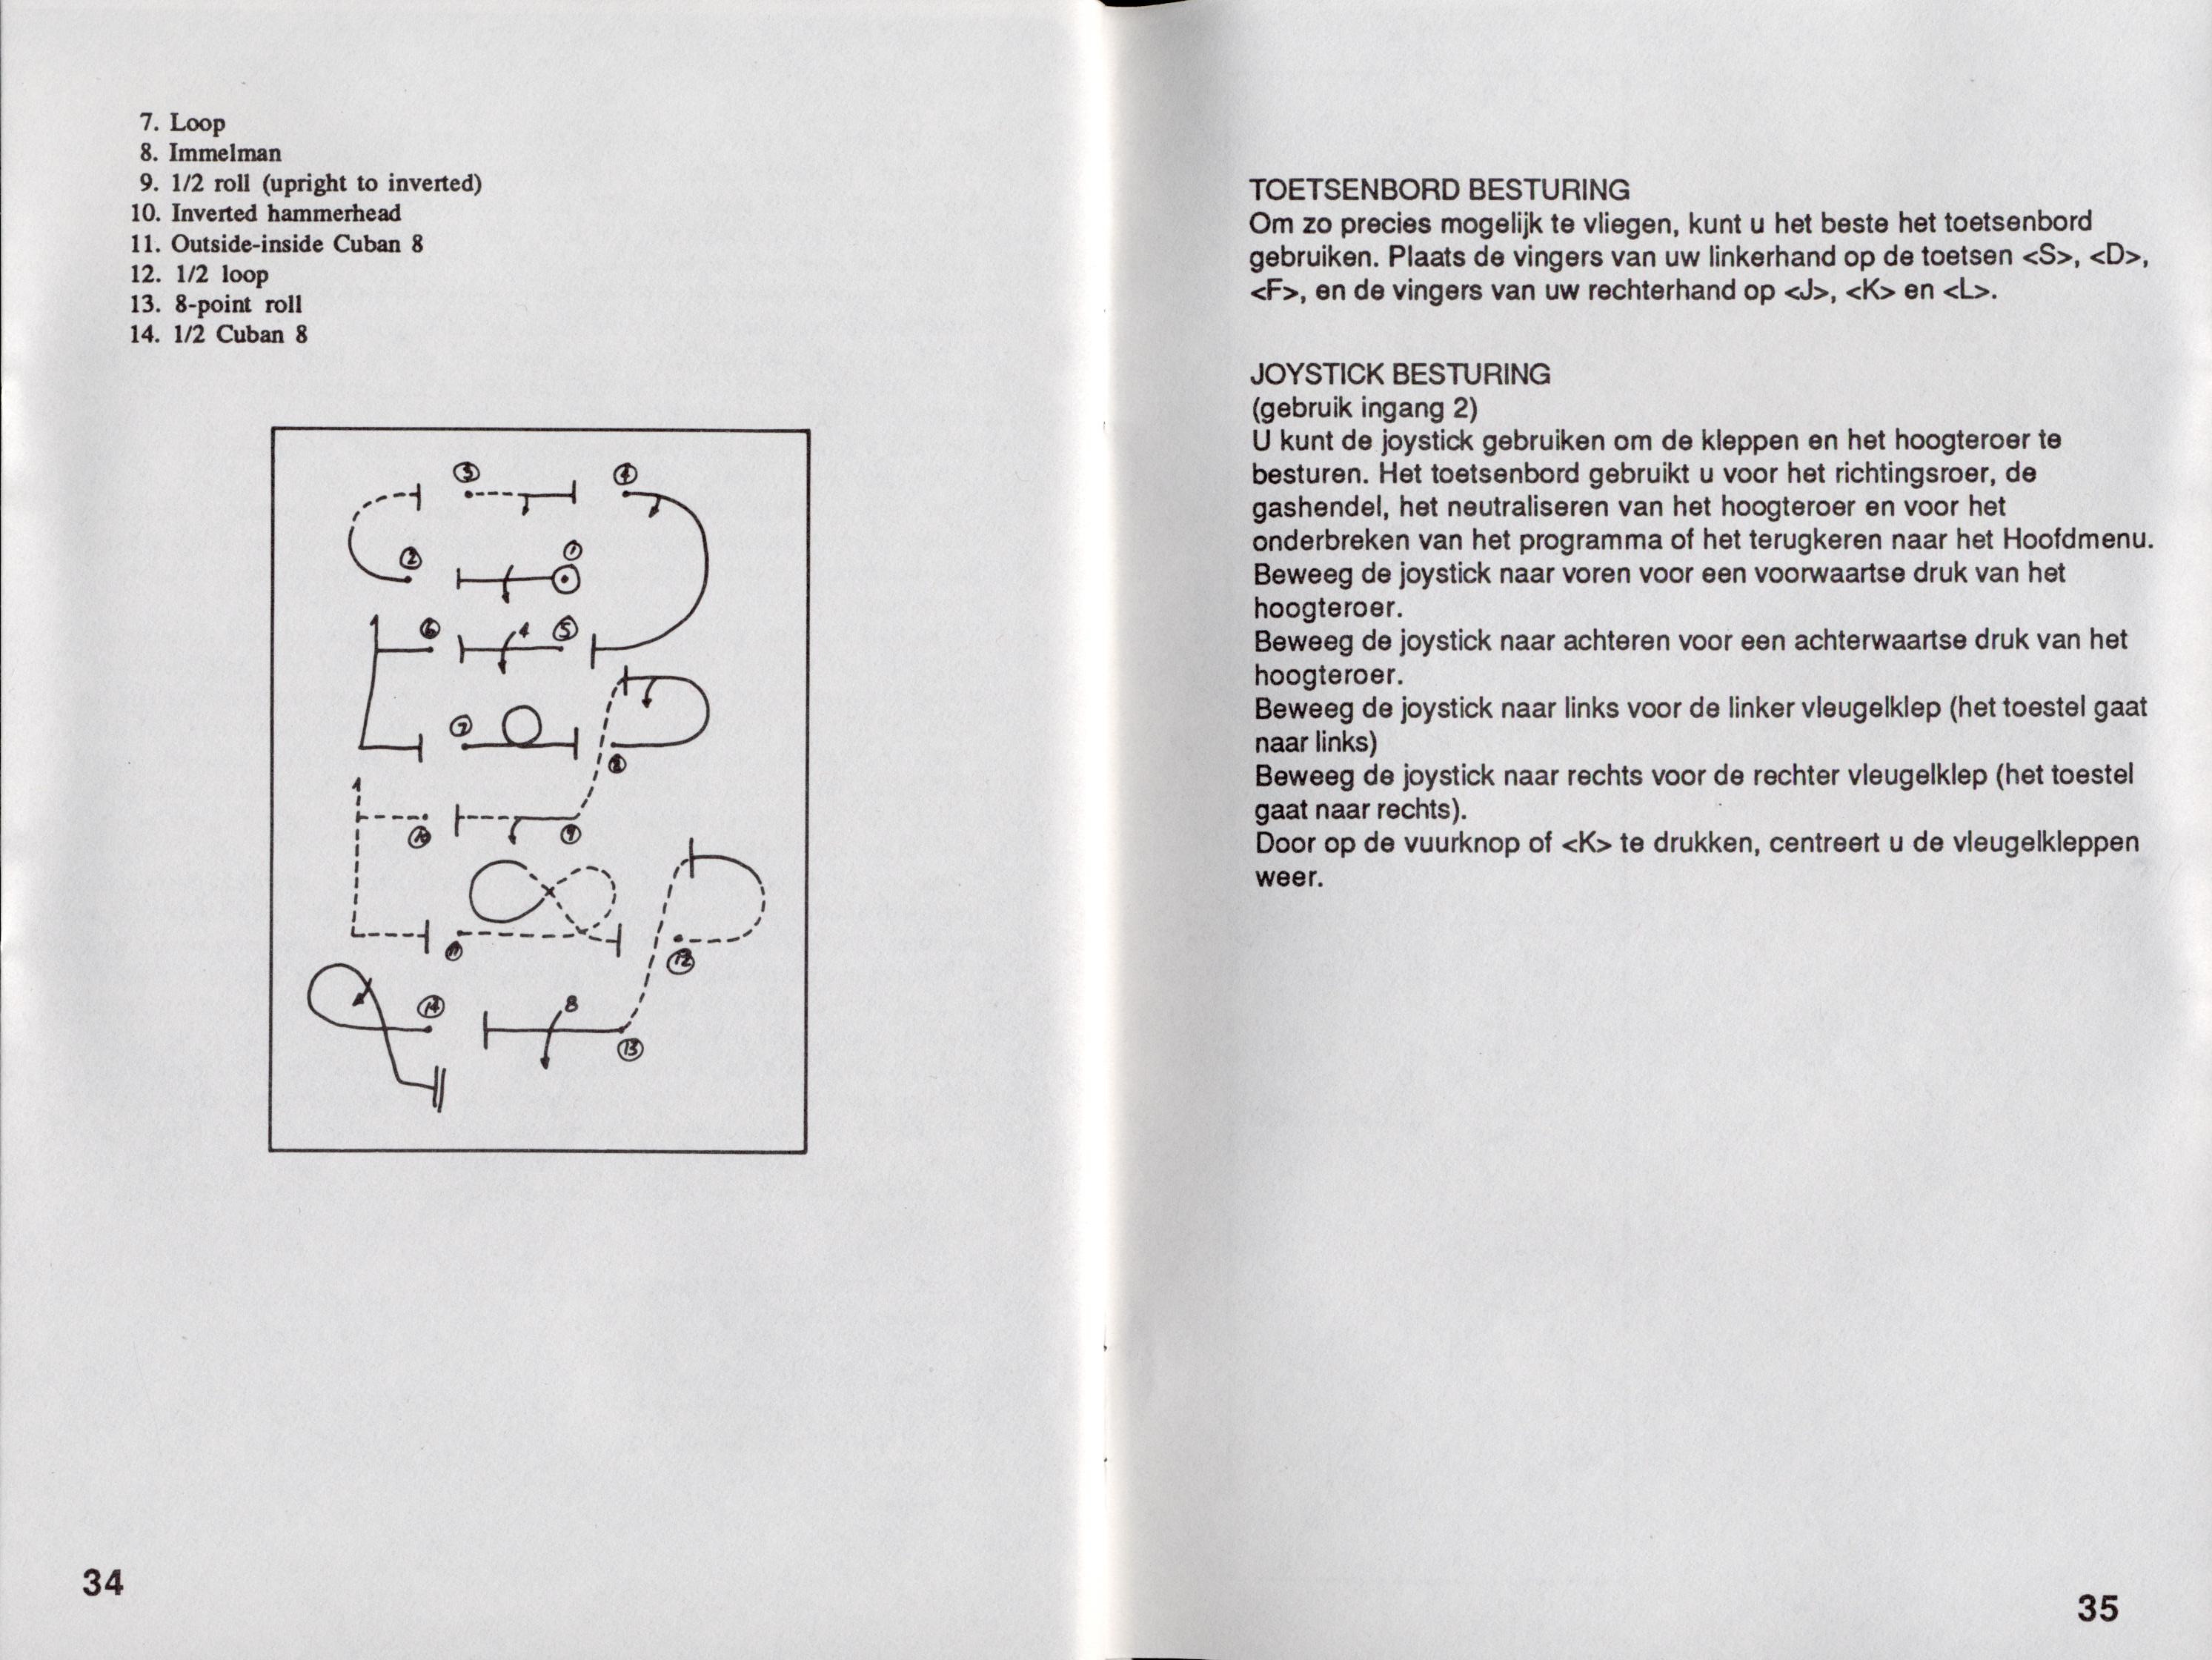 7. Loop
8. Immelman
9. 1/2 roll (upright to inverted)
10. Inverted hammerhead
11. Outside-inside Cuban 8
12. 1/2 loop
13. 8-point roll
14. 1/2 Cuban 8
3 4
2 1
6 4 5
7
8
10 9
11 12
14 8
13
34
TOETSENBORD BESTURING
Om zo precies mogelijk te vliegen, kunt u het beste het toetsenbord
gebruiken. Plaats de vingers van uw linkerhand op de toetsen <S>, <D>,
<F>, en de vingers van uw rechterhand op <J>, <K> en <L>.
JOYSTICK BESTURING
(gebruik ingang 2)
U kunt de joystick gebruiken om de kleppen en het hoogteroer te
besturen. Het toetsenbord gebruikt u voor het richtingsroer, de
gashendel, het neutraliseren van het hoogteroer en voor het
onderbreken van het programma of het terugkeren naar het Hoofdmenu.
Beweeg de joystick naar voren voor een voorwaartse druk van het
hoogteroer.
Beweeg de joystick naar achteren voor een achterwaartse druk van het
hoogteroer.
Beweeg de joystick naar links voor de linker vleugelklep (het toestel gaat
naar links)
Beweeg de joystick naar rechts voor de rechter vleugelklep (het toestel
gaat naar rechts).
Door op de vuurknop of <K> te drukken, centreert u de vleugelkleppen
weer.
35